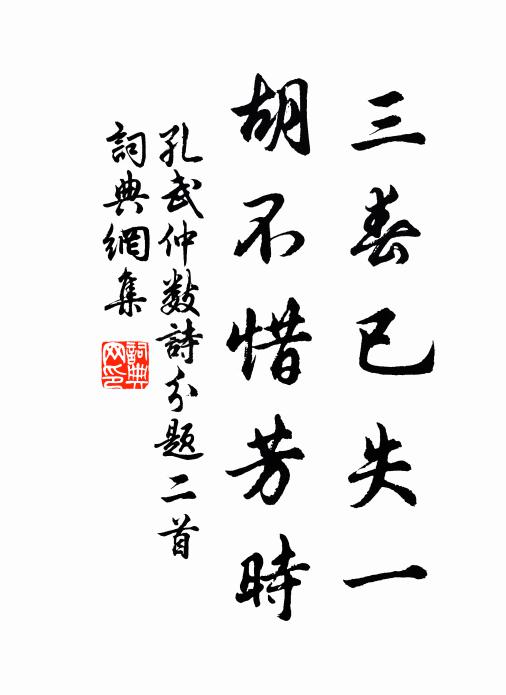 三春已失一
胡不惜芳時
孔武仲數詩分題二首
詞典網集
詞典
网印